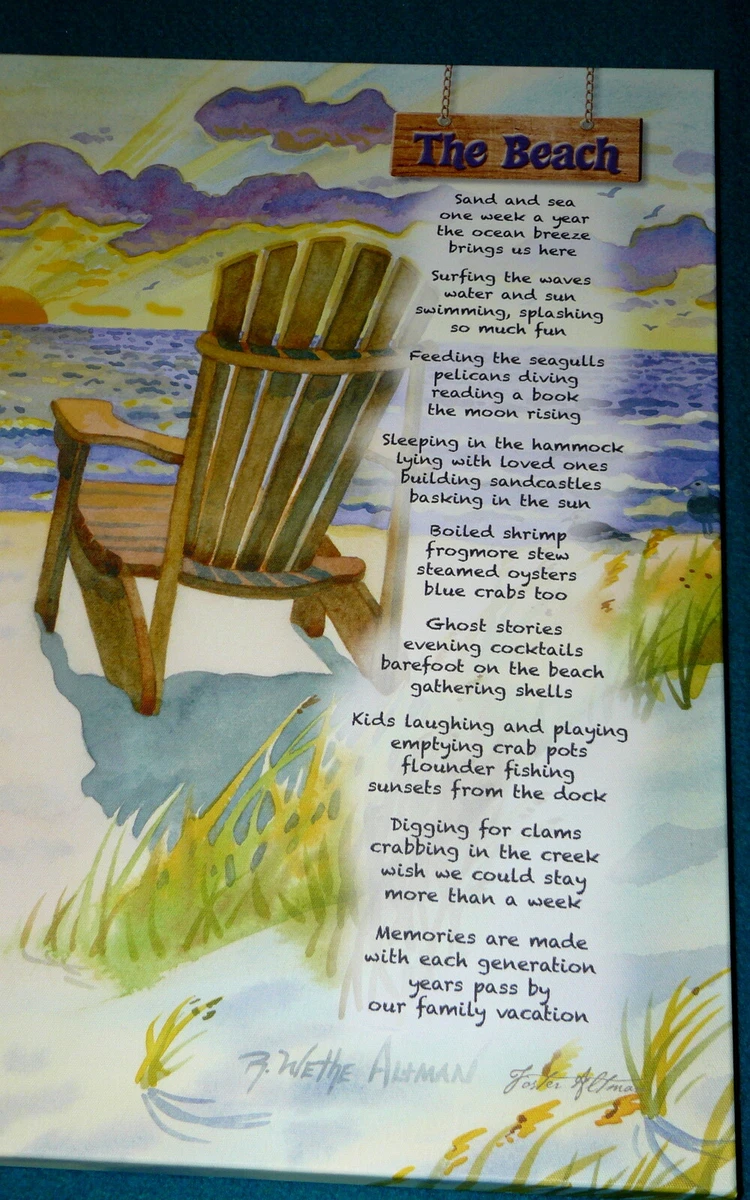 The Beach
Sand and sea
one week a year
the ocean breeze
brings us here
Surfing the waves
water and sun
swimming, splashing
so much fun
Feeding the seagulls
pelicans diving
reading a book
the moon rising
Sleeping in the hammock
lying with loved ones
building sandcastles
basking in the sun
Boiled shrimp
frogmore stew
steamed oysters
blue crabs too
Ghost stories
evening cocktails
barefoot on the beach
gathering shells
Kids laughing and playing
emptying crab pots
flounder fishing
sunsets from the dock
Digging for clams
crabbing in the creek
wish we could stay
more than a week
Memories are made
with each generation
years pass by
our family vacation
R. Wethe Altman
Foster Altman